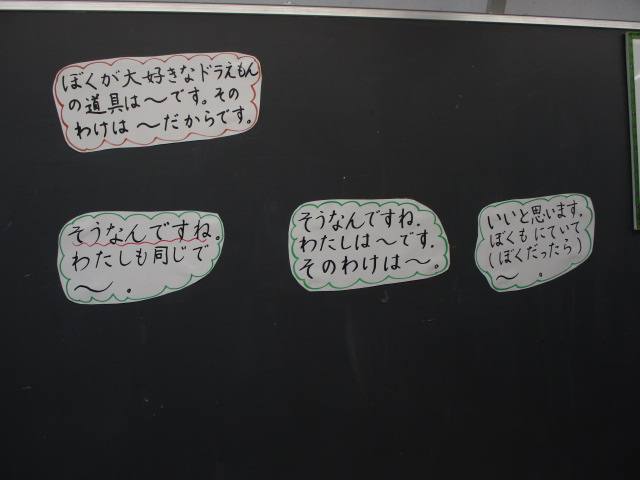 ぼくが大好きなドラえもん
の道具は～です。その
わけは～だからです。
そうなんですね。
わたしも同じで
～。
そうなんですね。
わたしは～です。
そのわけは～。
いいと思います。
ぼくもにていて
(ぼくだったら)
～。